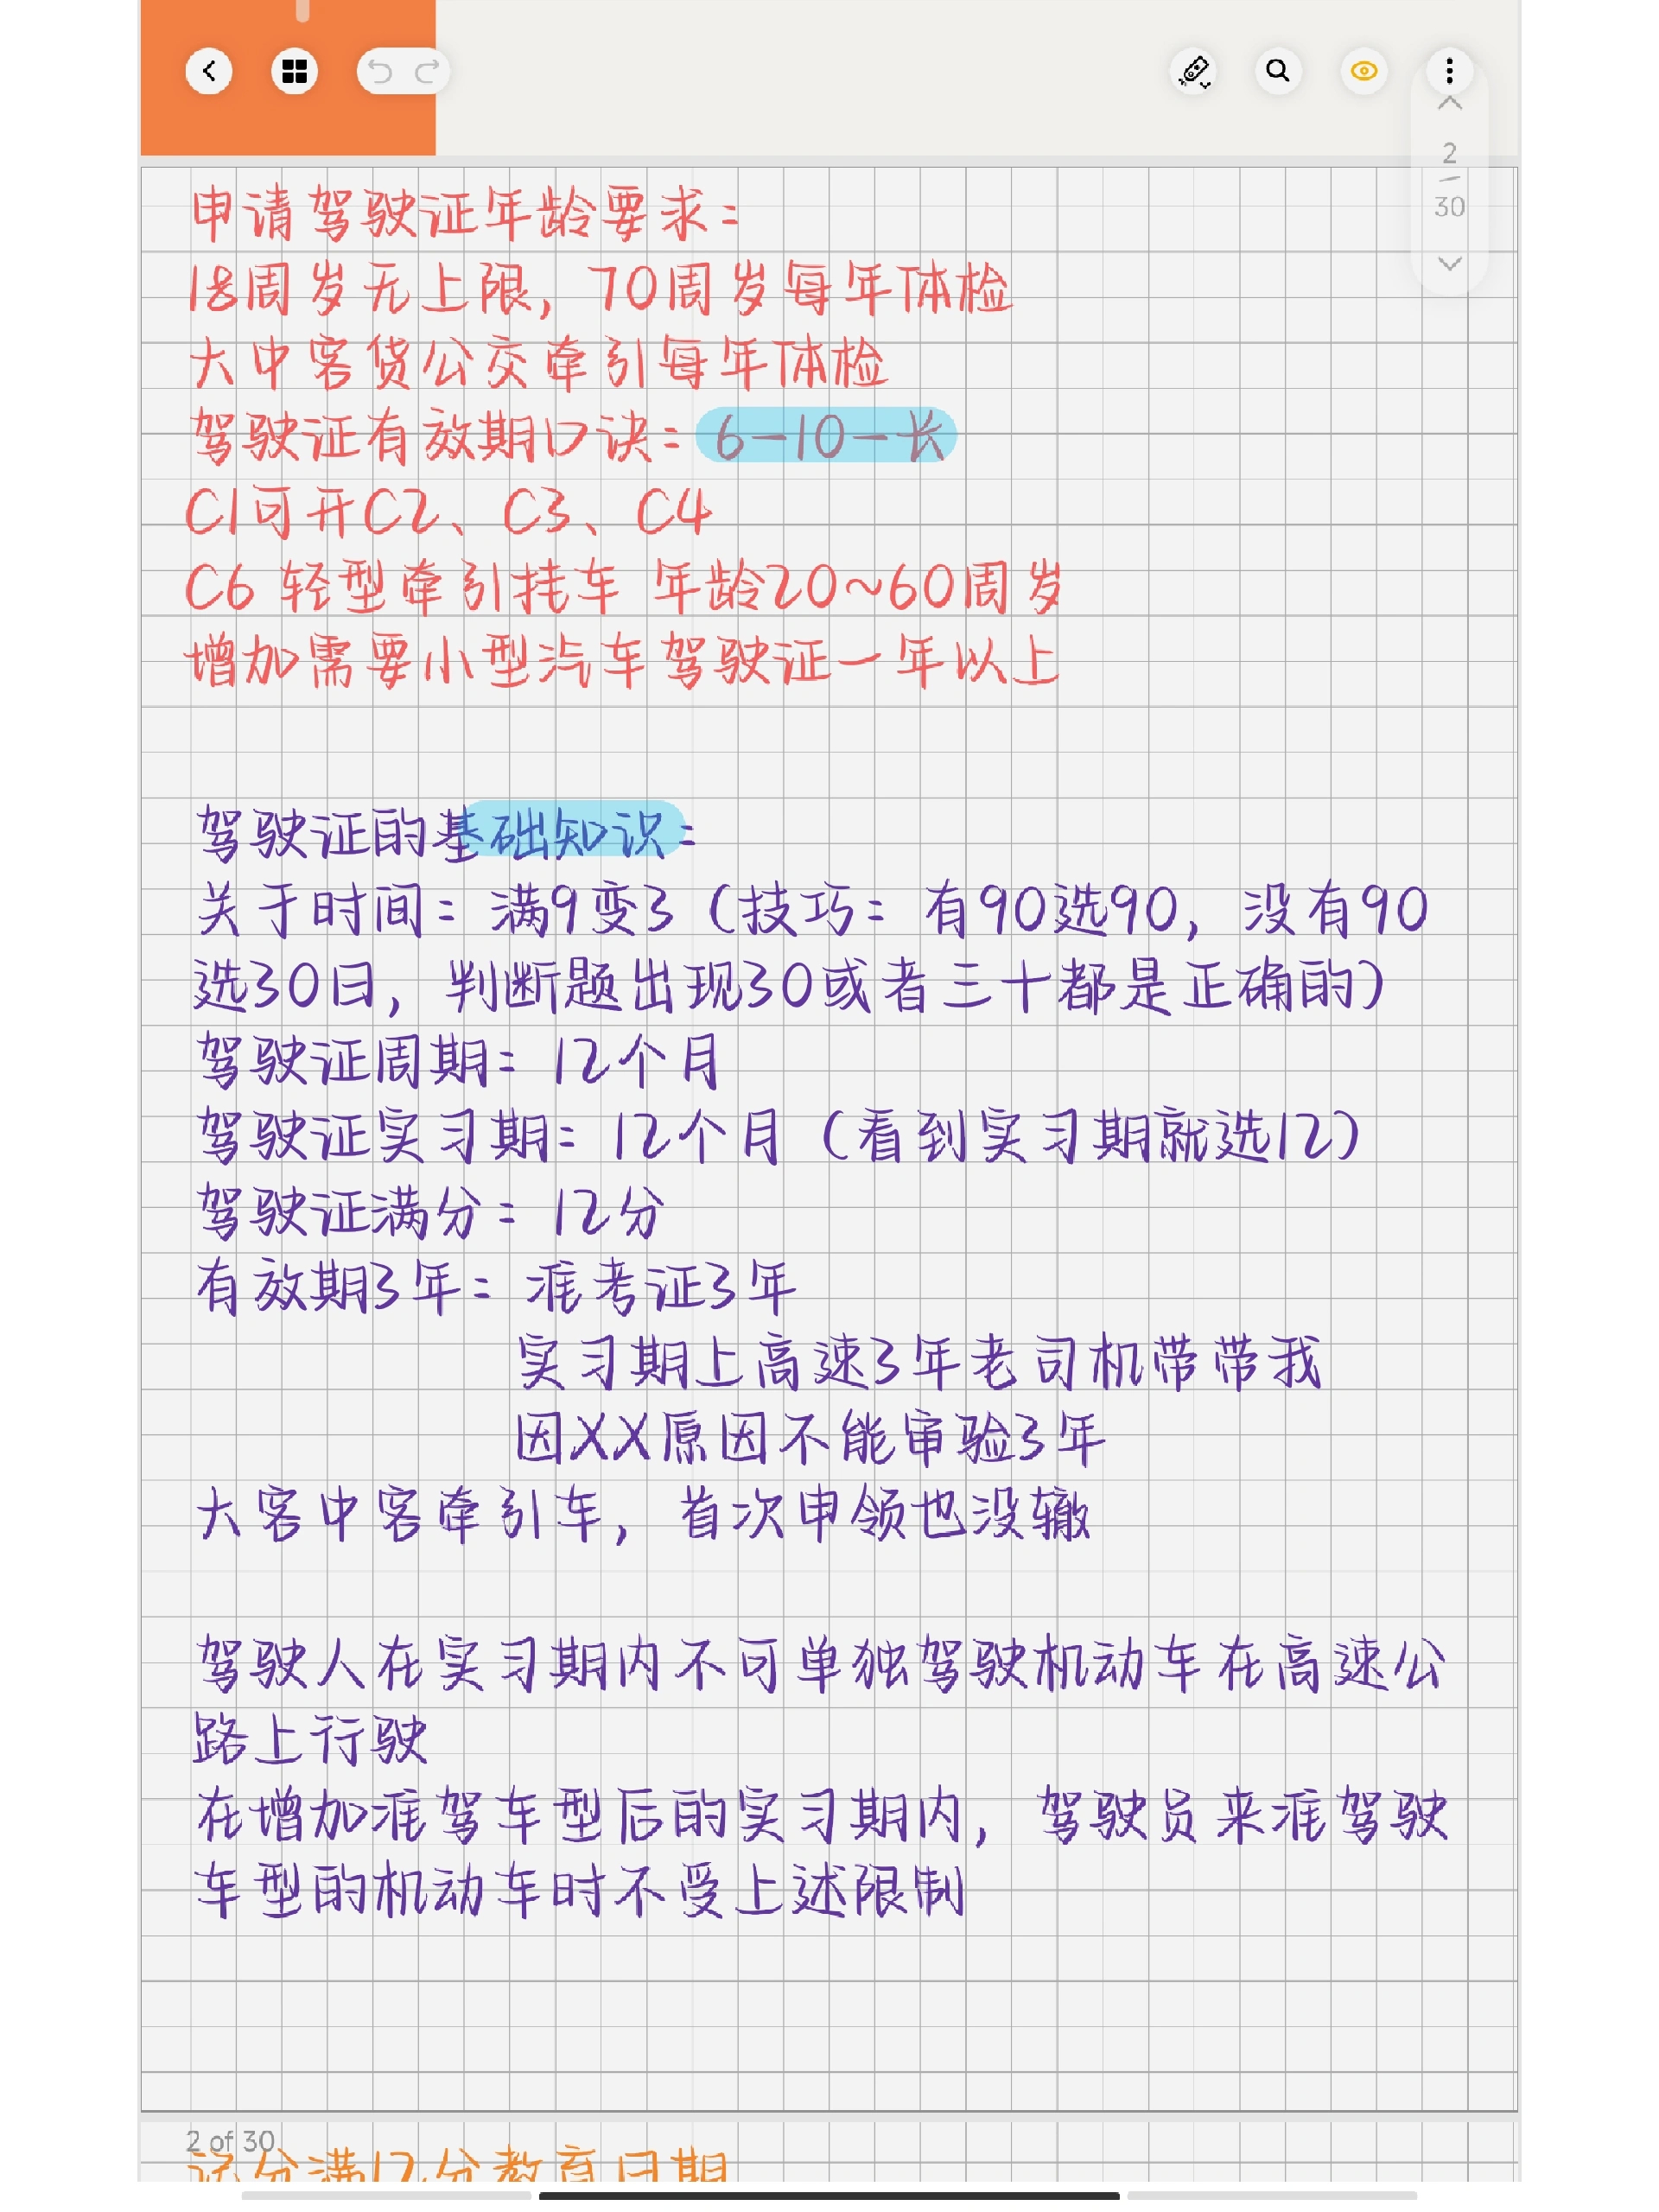 2
30
申请驾驶证年龄要求：
18周岁无上限，70周岁每年体检
大中客货公交牵引每年体检
驾驶证有效期口诀：6－10－长
C1可开C2、C3、C4
C6 轻型牵引挂车 年龄20~60周岁
增加需要小型汽车驾驶证一年以上
驾驶证的基础知识：
关于时间：满9变3（技巧：有90选90，没有90
选30日，判断题出现30或者三十都是正确的）
驾驶证周期：12个月
驾驶证实习期：12个月（看到实习期就选12）
驾驶证满分：12分
有效期3年：准考证3年
实习期上高速3年老司机带带我
因XX原因不能审验3年
大客中客牵引车，首次申领也没辙
驾驶人在实习期内不可单独驾驶机动车在高速公
路上行驶
在增加准驾车型后的实习期内，驾驶员来准驾驶
车型的机动车时不受上述限制
2 of 30
记分满12分教育日期